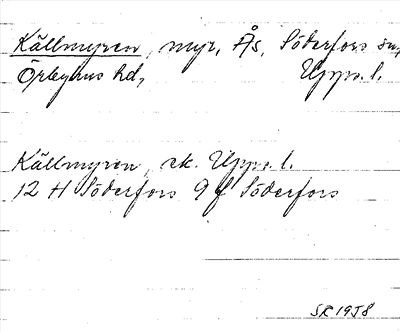 Källmyren, myr, Ås, Söderfors sn,
Örbyhus hd, Upps. l.
Källmyren, ek. Upps. l.
12 H Söderfors 9 f Söderfors
SR 1958